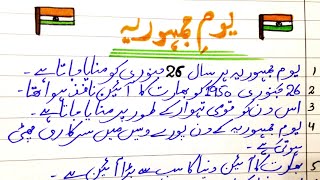 یومِ جمہوریہ
1 یوم جمہوریہ ہر سال 26 جنوری کو منایا جاتا ہے۔
2 26 جنوری 1950 کو بھارت کا آئین نافذ ہوا تھا۔
3 اس دن کو قومی تہوار کے طور پر منایا جاتا ہے۔
4 یوم جمہوریہ کے دن پورے دیس میں سرکاری چھٹی
ہوتی ہے۔
5 بھارت کا آئین دنیا کا سب سے بڑا آئین ہے۔